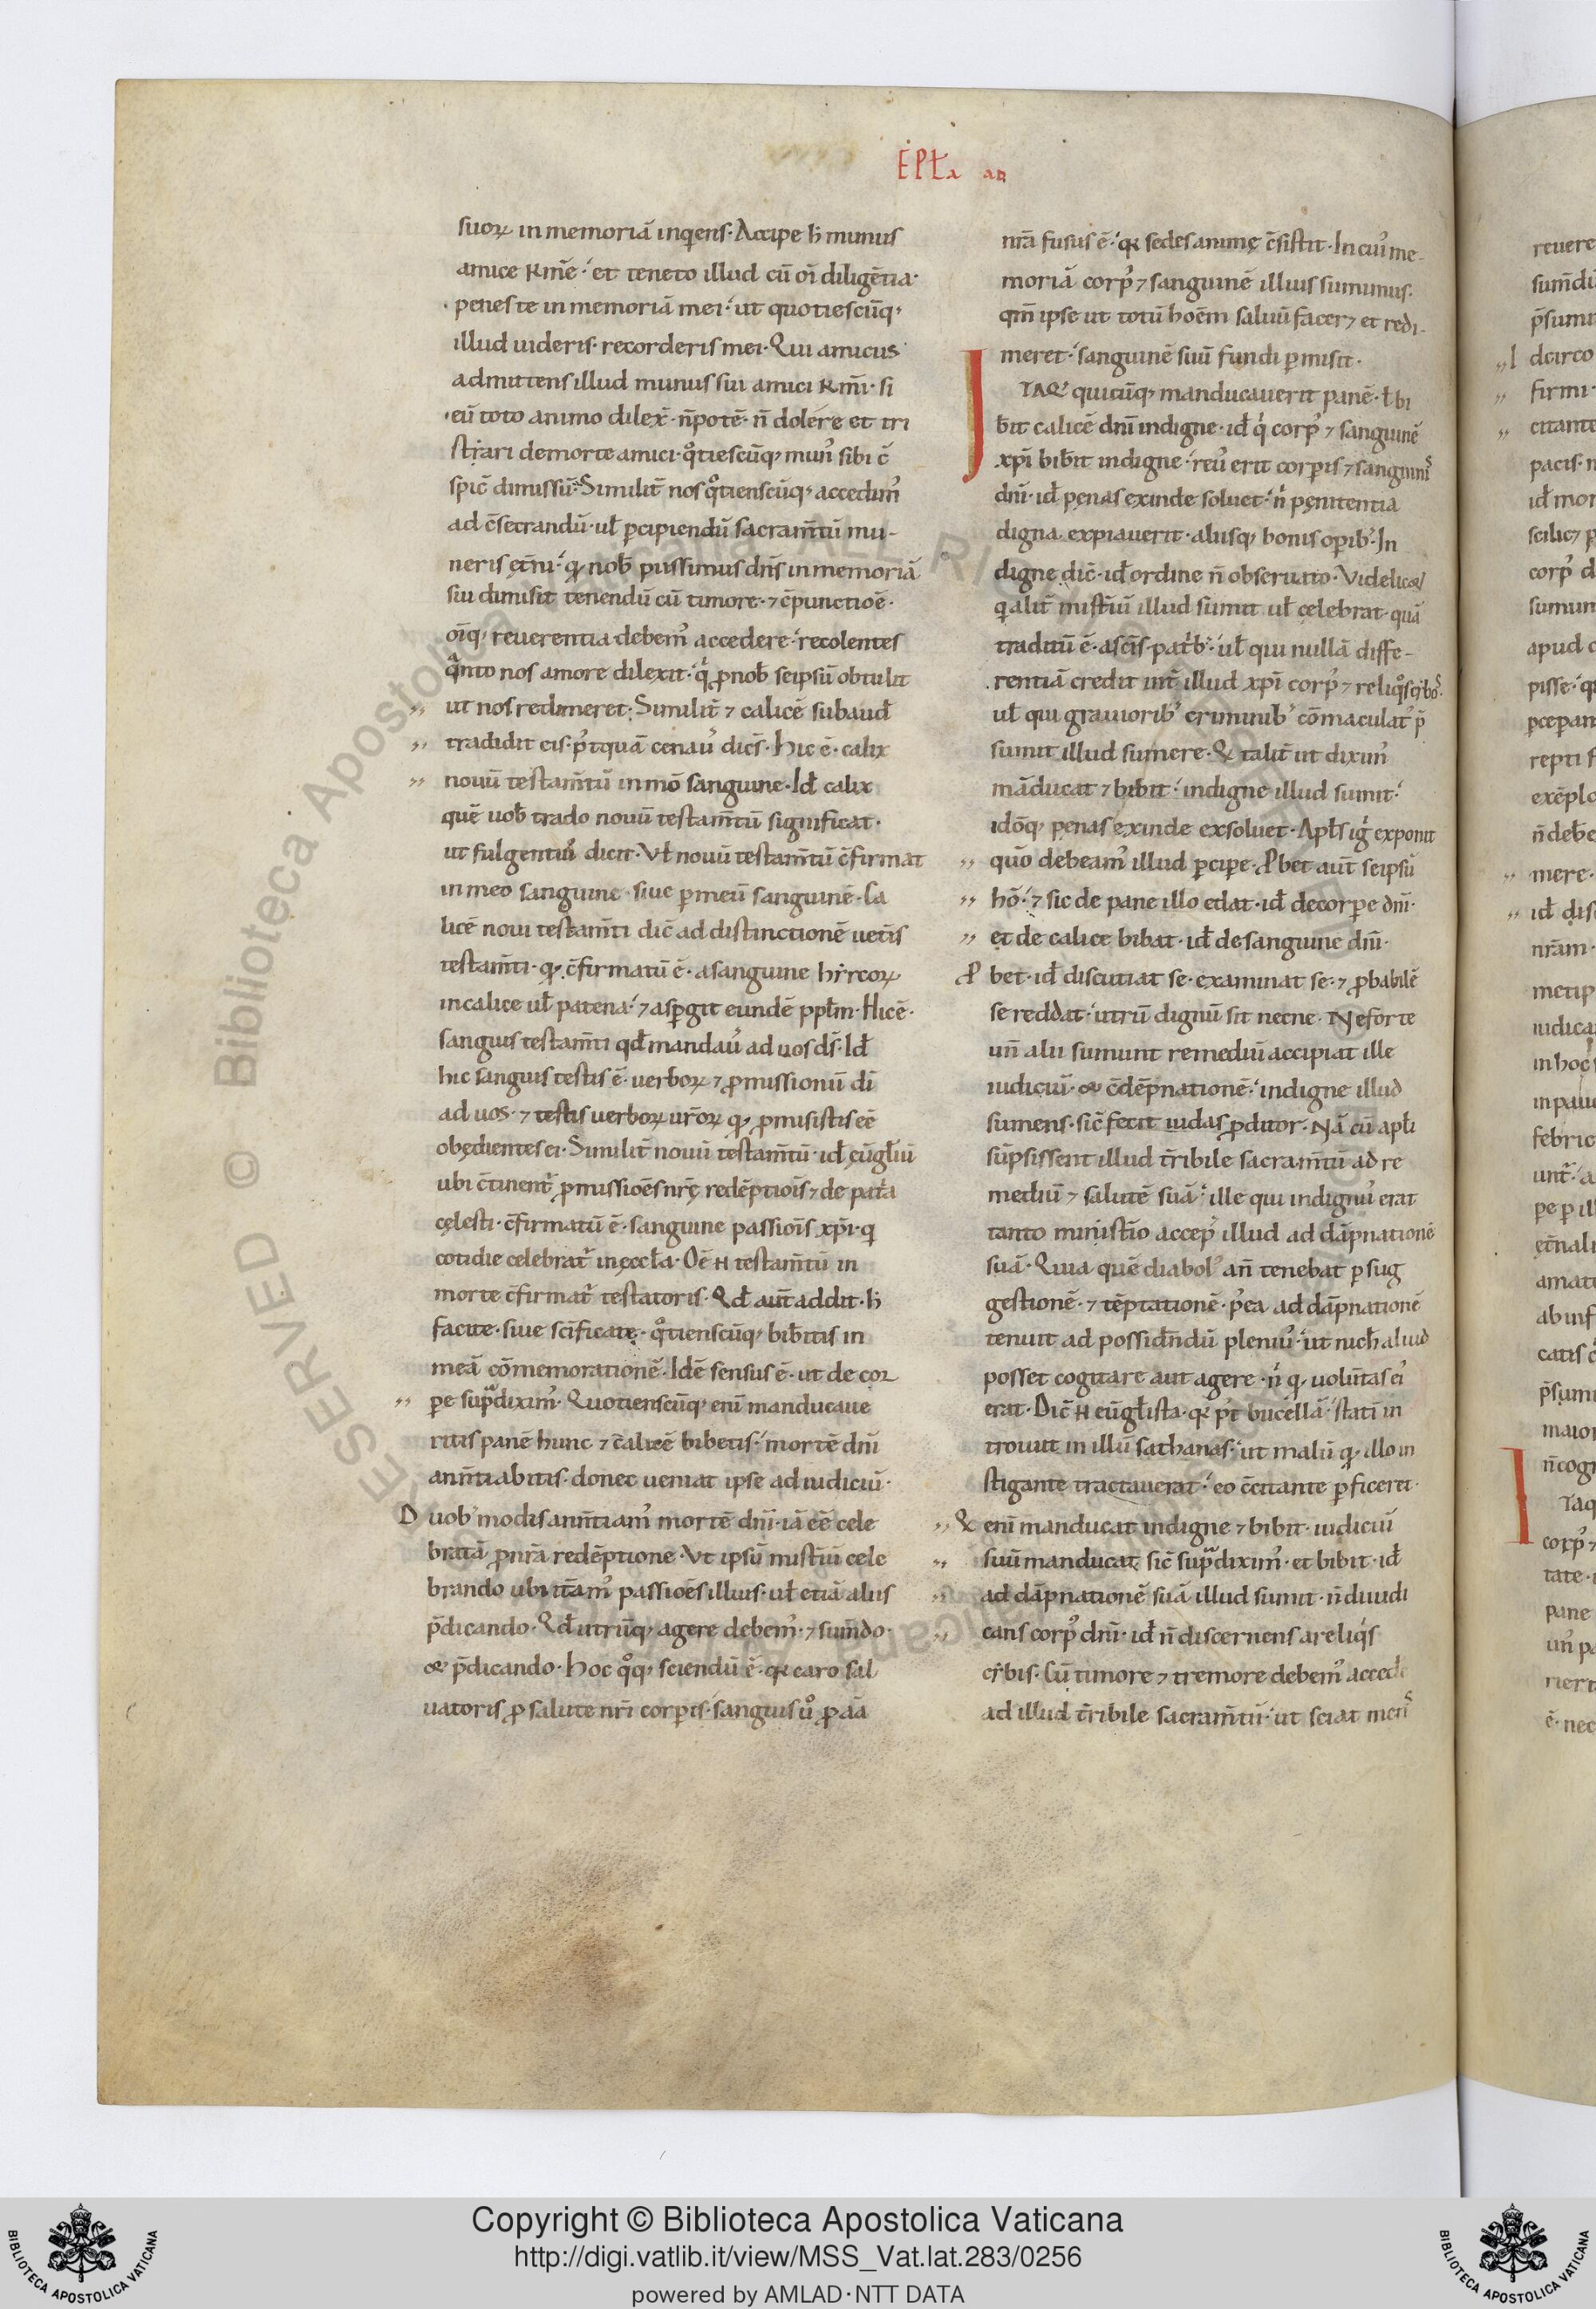 EPLa ad
suoꝝ in memoriā inqͥens· Accipe h̄ munus
amice kīne· et teneto illud cū oī diligētia·
penes te in memoriā mei· ut quotiescūq;
illud uideris· recorderis mei· Qui amicus
admittens illud munus sui amici kīni· si
eū toto animo dilex̄· n̄ potē· n̄ dolére et tri
stiari de morte amici· qͦtiescūq; munꝰ sibi c̄
spic̄ dimissū· Similit̄ nos qͦtienscūq; accedimꝰ
ad c̄secrandū· ul̄ p̄cipiendū sacram̄tū mu-
neris et̄ni· qͥ nob̄ piissimus dn̄s in memoriā
sui dimisit tenendū cū timore· ⁊ c̄punctioē·
oīq; reuerentia debemꝰ accedere· recolentes
qͣnto nos amore dilexit· qͥ ꝓ nob̄ seipsū obtulit
ut nos redimeret· Similit̄ ⁊ calicē subaud̄
tradidit eis· pꝰtquā cenauͥ dicēs· Hic ē· calix
nouū testam̄tū in mō sanguine· Id̄ calix
quē uob̄ trado nouū testam̄tū significat·
ut fulgentiꝰ dicit· Vl̄ nouū testam̄tū c̄firmat
in meo sanguine· siue p̄ meū sanguinē· Ca
licē noui testam̄ti dic̄ ad distinctionē uet̄is
testam̄ti· qͥ c̄firmatū ē· a sanguine hircoꝝ
in calice ul̄ patena· ⁊ asp̄git eundē ppl̄m· Hic ē·
sanguis testam̄ti qd̄ mandauͥ ad uos ds̄· Id̄
hic sanguis testis ē· uerboꝝ ⁊ ꝓmissionū dī
ad uos· ⁊ testis uerboꝝ ur̄oꝝ qͥ ꝓmisistis eē
obedientes ei· Similit̄ nouū testam̄tū· id̄ euḡliū
ubi c̄tinent̄ ꝓmissioēs nr̄ę redēptiois̄ ⁊ de pat̄a
cęlesti· c̄firmatū ē· sanguine passiois̄ xp̄i· qͥ
cotidie celebrat̄ in ęccl̄a· Oē n̄ testam̄tū in
morte c̄firmat̄ testatoris· Qd̄ aut̄ addit· h̄
facite· siue scīficate· qͦtienscūq; bibitis in
meā cōmemorationē· Idē sensus ē· ut de cor
pe supͣdiximꝰ· Quotienscūq; enī manducaue
ritis panē hunc ⁊ calicē bibetis· mortē dn̄i
ann̄tiabitis· donec ueniat ipse ad iudiciū·
Duob modis ann̄tiamꝰ mortē dn̄i· iā eē cele
bratā ꝓ nr̄a redēptione· Vt ipsū mist̄iū cele
brando ubi itāmꝰ passioēs illius· ul̄ etiā aliis
p̄dicando· Qd̄ utrūq; agere debemꝰ· ⁊ sum̄do·
et p̄dicando· Hoc qͦq; sciendū ē· qꝛ caro sal
uatoris ꝓ salute nr̄i corpis· sanguis uͦ ꝓ aīa
nr̄a fusus ē· qꝛ sedes animę c̄sistit· In cuiꝰ me-
moriā corpꝰ ⁊ sanguinē illius sumimus·
qm̄ ipse ut totū hoēm saluū facer⁊ et redi-
meret· sanguinē suū fundi pmisit·
ITAQ; quicūq; manducauerit panē· ul̄ bi
bit calicē dn̄i indigne· id̄ qͥ corpꝰ ⁊ sanguinē
xp̄i bibit indigne· reuꝰ erit corpis ⁊ sanguinis
dn̄i· id̄ penas exinde soluet· nͥ pęnitentia
digna expiauerit· aliisq; bonis opibꝰ· In
digne dic̄· id̄ ordine n̄ obseruato· Videlicet
qͣlit̄ mist̄iū illud sumit ul̄ celebrat· quā
traditū ē· a scīs· patribꝰ· ul̄ qui nullā diffe-
rentiā credit int̄ illud xp̄i corpꝰ ⁊ reliqͦs cibos·
ul̄ qui grauioribꝰ criminibꝰ cōmaculatꝰ p̄
sumit illud sumere· & talit̄ ut diximꝰ
māducat ⁊ bibit· indigne illud sumit·
idōq; penas exinde exsoluet· Apl̄s igͥ exponit
quō debeamꝰ illud p̄cipe· Pͦbet aut̄ seipsū
hō· ⁊ sic de pane illo edat· id̄ de corpe dn̄i·
et de calice bibat· id̄ de sanguine dn̄i·
Ꝓbet· id̄ discutiat se· examinat se· ⁊ ꝓbabilē
se reddat· utrū dignū sit necne· Ne forte
un̄ alii sumunt remediū accipiat ille
iudiciū· et c̄dēpnationē· indigne illud
sumens· sic̄ fecit iudas ꝓditor· Nā cū apl̄i
sūpsissent illud t̄ribile sacram̄tū ad re
mediū ⁊ salutē suā· ille qui indignꝰ erat
tanto minist̄io accep̄ illud ad dāpnationē
suā· Quia quē diabolꝰ an̄ tenebat p sug
gestionē· ⁊ tēptationē· pꝰea ad dāpnationē
tenuit ad possid̄ndū pleniꝰ· ut nich̄ aliud
posset cogitare aut agere· nͥ qͥ uolun̄tas eiꝰ
erat· Dic̄ n̄ euḡlista· qꝛ pꝰt bucellā· statī in
trouit in illū sathanas· ut malū qͥ illo in
stigante tractauerat· eo c̄citante pficeret·
& enī manducat indigne ⁊ bibit· iudiciū
suū manducat sic̄ supͣdiximꝰ· et bibit· id̄
ad dāpnationē suā illud sumit· n̄ diiudi
cans corpꝰ dn̄i· id̄ n̄ discernens a reliqͥs
cibis· Cū timore ⁊ tremore debemꝰ accede
ad illud t̄ribile sacram̄tū· ut sciat mens
Copyright © Biblioteca Apostolica Vaticana
http://digi.vatlib.it/view/MSS_Vat.lat.283/0256
powered by AMLAD·NTT DATA